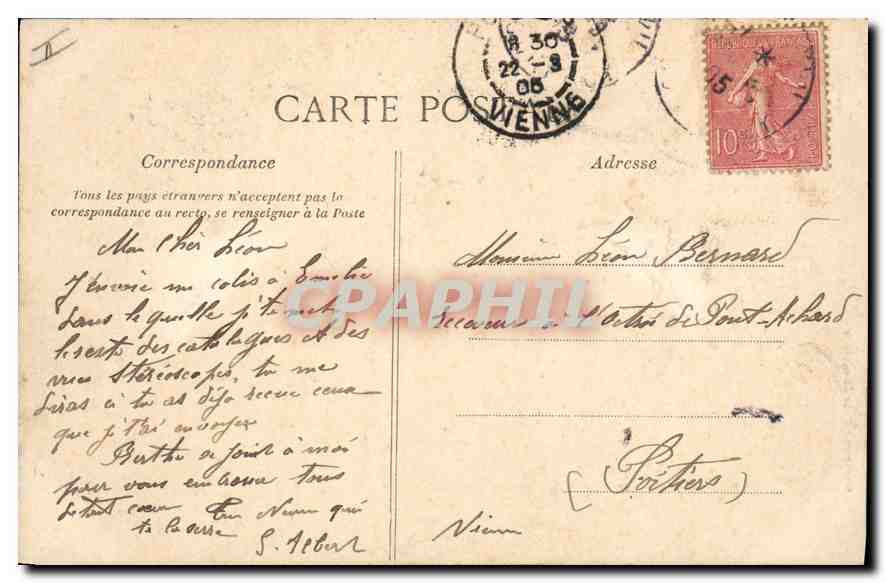 CARTE POS
8 30
22 -8
05
VIENNE
REPUBLIQUE FRANÇAISE
10
15
Correspondance
Tous les pays étrangers n'acceptent pas la
correspondance au recto, se renseigner à la Poste
Mon Cher Léon
J'envoie un colis à Emelie
dans lequelle j'te met
le reste des catalogues et des
vues Stéréoscopes, tu me
diras si tu as déjà recue ceux
que j't'ai envoyer
Berthe se joint à moi
pour vous embrasser tous
de tout coeur Ton Neveu qui
te la serre
S. Albert
Adresse
Monsieur Léon Bernard
Receveur à l'Octroi de Pont-Achard
(Poitiers)
Vienne
CPAPHIL